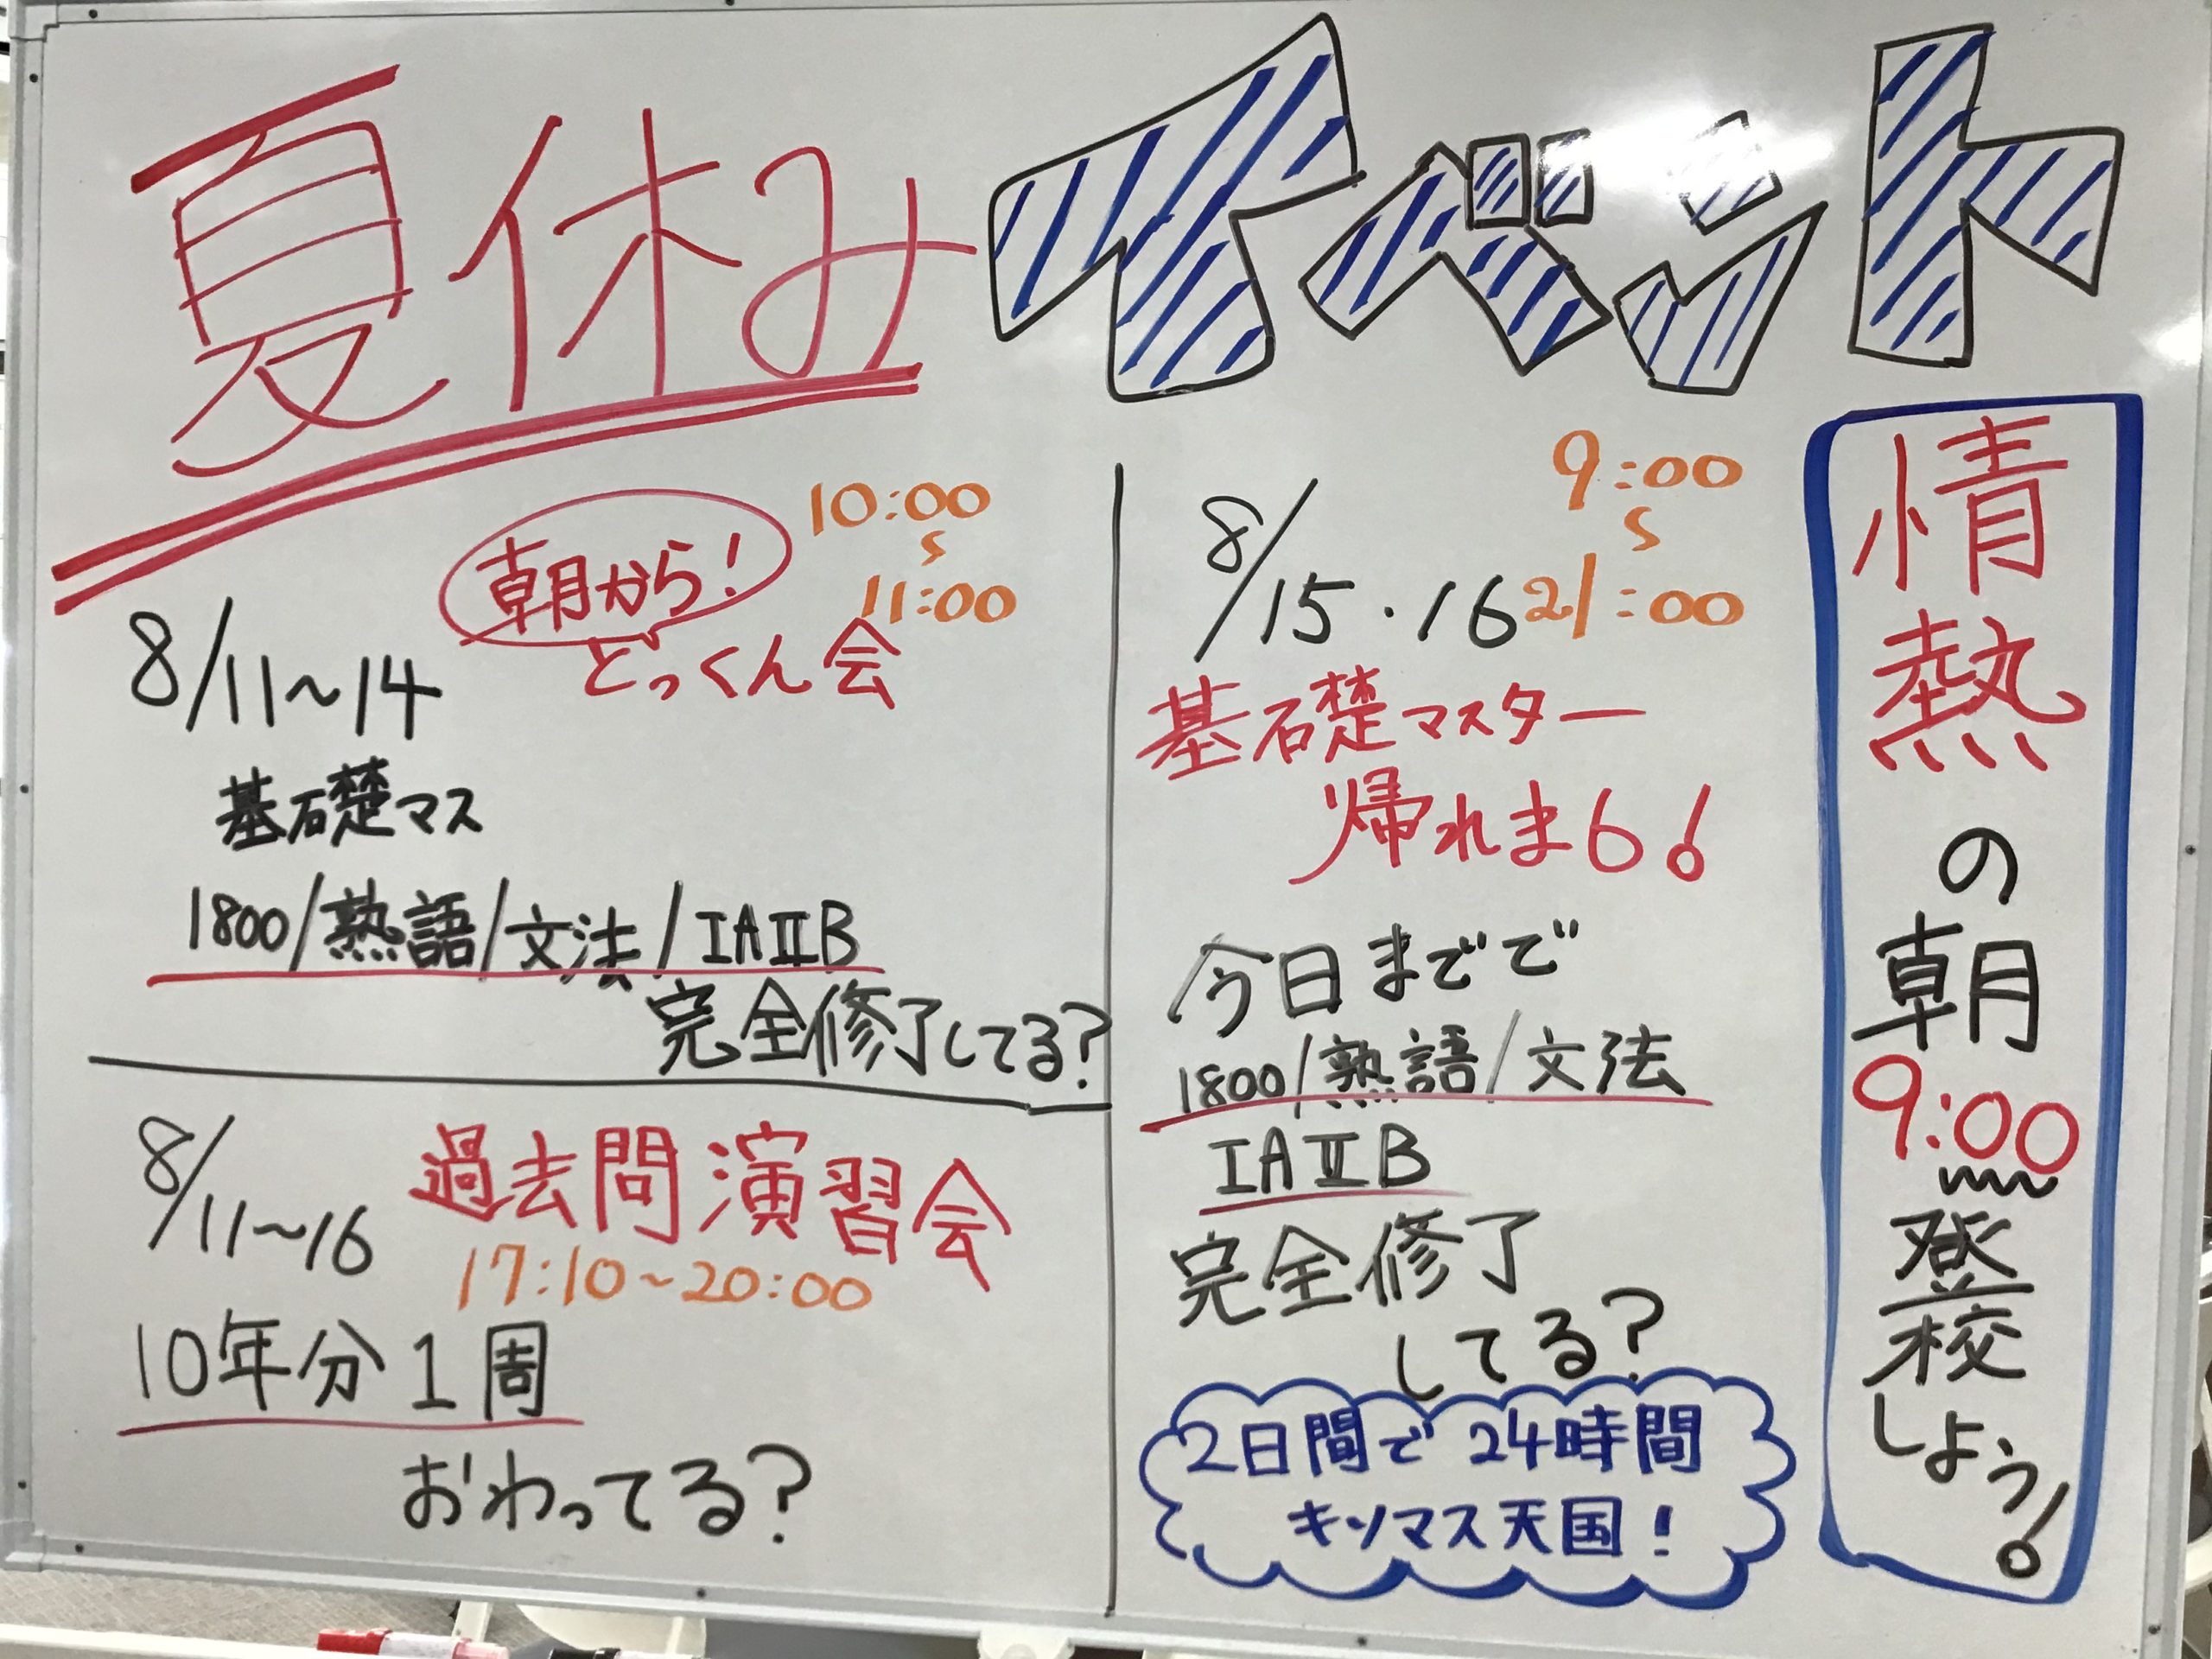 夏休みイベント
8/11~14
朝から!
どっくん会
10:00
~
11:00
基礎マス
1800/熟語/文法/ⅠAⅡB
完全修了してる?
8/11~16
過去問演習会
17:10~20:00
10年分1周
おわってる?
8/15・16
9:00
~
21:00
基礎マスター
帰れま6!
今日までで
1800/熟語/文法
ⅠAⅡB
完全修了
してる?
2日間で24時間
キソマス天国!
情熱の朝9:00登校しよう!